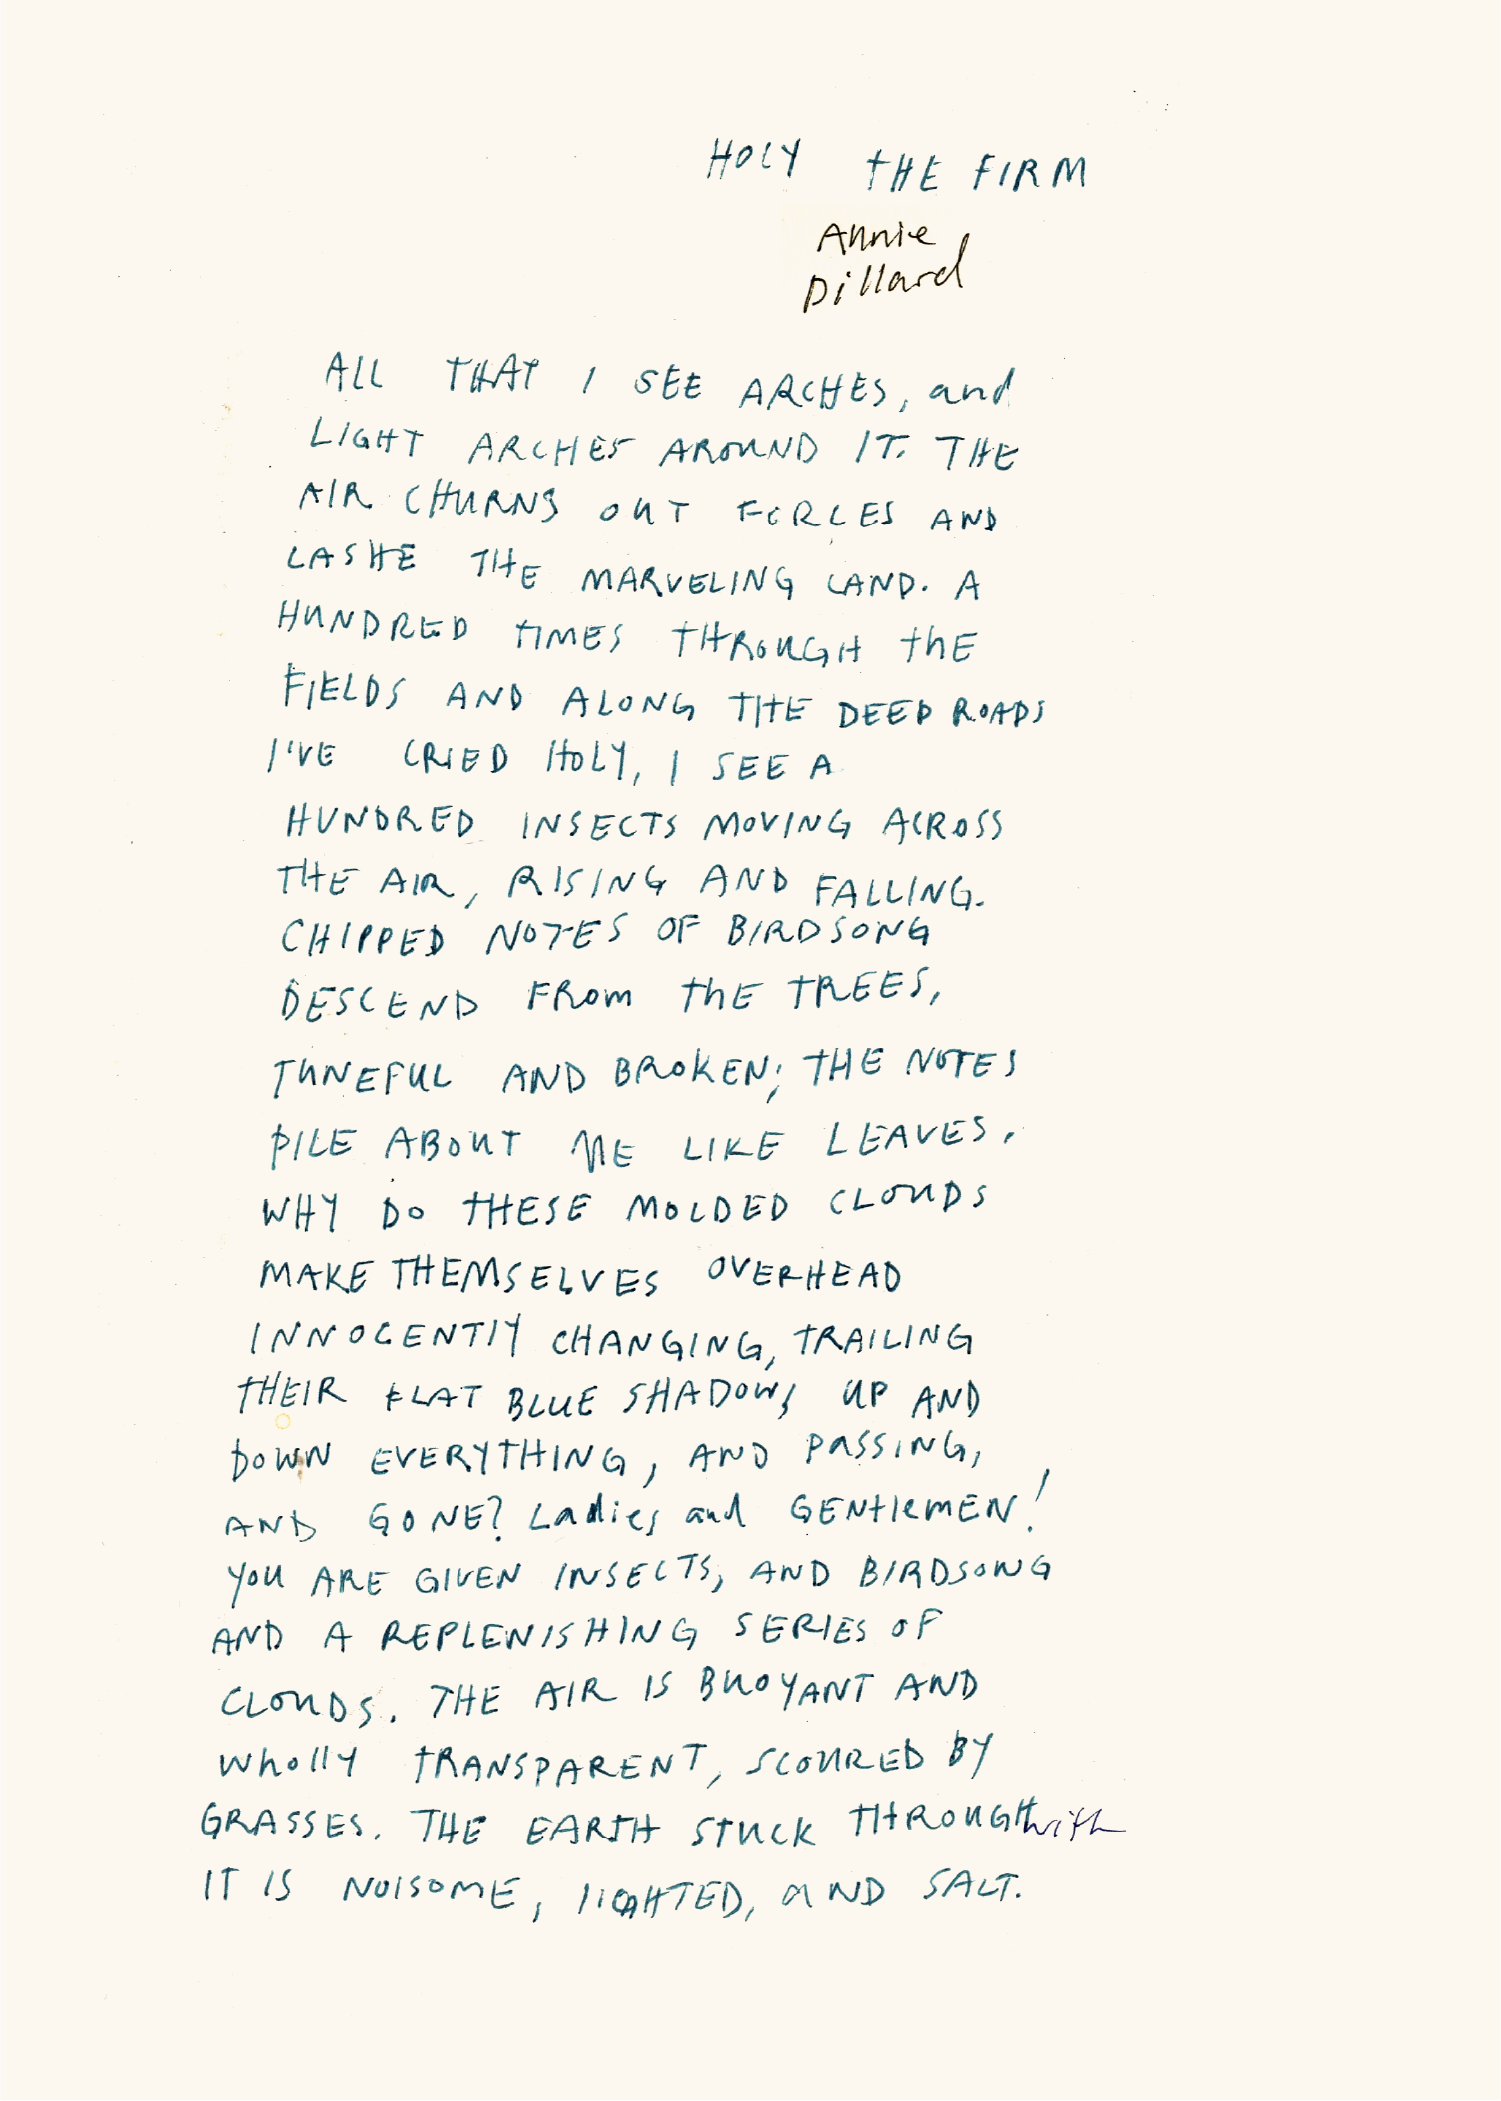 HOLY THE FIRM
Annie
Dillard
ALL THAT I SEE ARCHES, and
LIGHT ARCHES AROUND IT. THE
AIR CHURNS OUT FORCES AND
LASHE THE MARVELING LAND. A
HUNDRED TIMES THROUGH thE
FIELDS AND ALONG THE DEEP ROADS
I'VE CRIED HOLY, I SEE A
HUNDRED INSECTS MOVING ACROSS
THE AIR, RISING AND FALLING.
CHIPPED NOTES OF BIRDSONG
DESCEND FRom thE TREES,
TUNEFUL AND BROKEN; THE NOTES
PILE ABOUT ME LIKE LEAVES.
WHY DO THESE MOLDED CLOUDS
MAKE THEMSELVES OVERHEAD
INNOCENTLY CHANGING, TRAILING
THEIR FLAT BLUE SHADOWS UP AND
DOWN EVERYTHING, AND PASSING,
AND GONE? Ladies and GENtlemEN!
YOU ARE GIVEN INSECTS, AND BIRDSONG
AND A REPLENISHING SERIES OF
CLOUDS. THE AIR IS BUOYANT AND
Wholly TRANSPARENT, SCOURED BY
GRASSES. THE EARTH STUCK THROUGH with
IT IS NOISOME, lIGHTED, AND SALT.